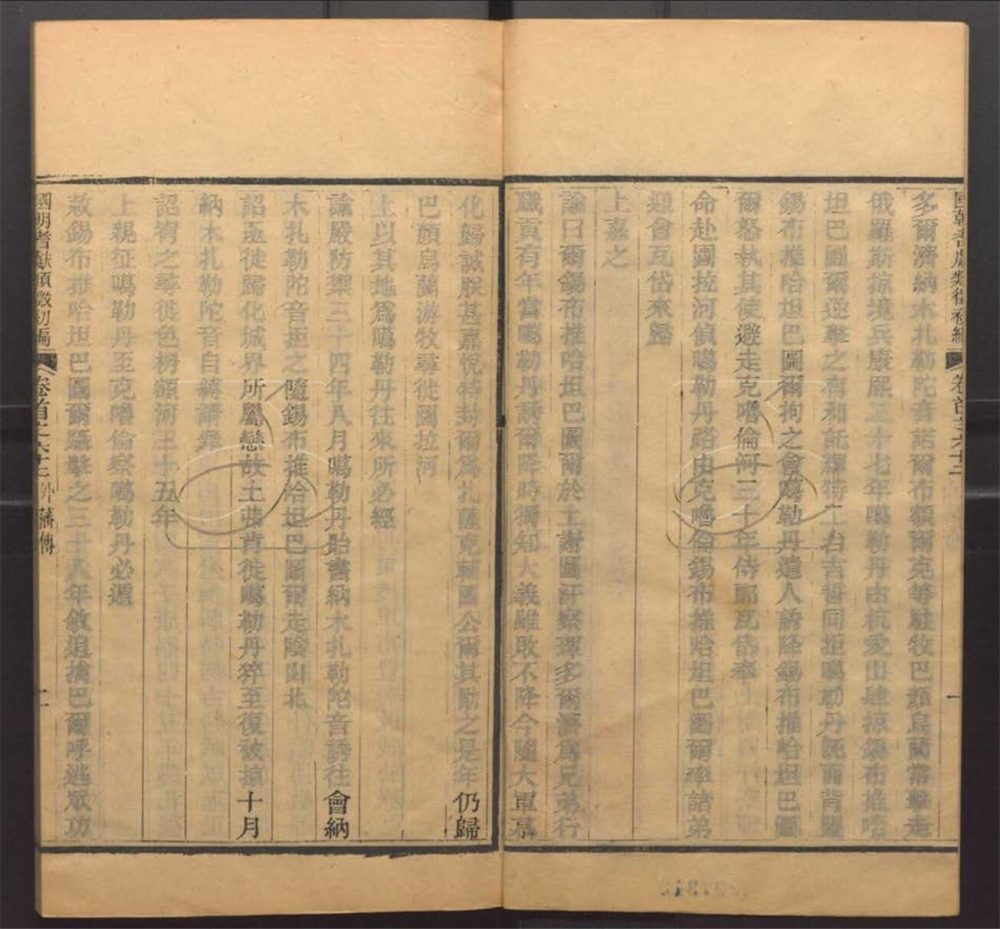 多爾濟納木扎勒陀音諾爾布額爾克等駐牧巴顏烏蘭常擊走
俄羅斯掠境兵康熙二十七年噶勒丹由杭愛山肆掠錫布推哈
坦巴圖爾逆擊之有和託輝特二台吉誓同拒噶勒丹旣而背盟
錫布推哈坦巴圖爾拘之會噶勒丹遣人誘降錫布推哈坦巴圖
爾怒執其使避走克嚕倫河三十年侍郎瓦岱奉
命赴圖拉河偵噶勒丹路由克嚕倫錫布推哈坦巴圖爾率諸弟
迎會瓦岱來歸
上嘉之
諭曰爾錫布推哈坦巴圖爾於土謝圖汗察琿多爾濟爲兄弟行
職貢有年當噶勒丹誘爾降時獨知大義雖敗不降今隨大軍慕
化歸誠朕甚嘉悅特封爾爲扎薩克輔國公爾其勖之是年仍歸
巴顏烏蘭游牧尋徙圖拉河
上以其地爲噶勒丹往來所必經
諭嚴防禦三十四年八月噶勒丹貽書納木扎勒陀音誘往會納
木扎勒陀音拒之隨錫布推哈坦巴圖爾走陰山北
詔亟徙歸化城界所屬戀故土弗肯徙噶勒丹猝至復被掠十月
納木扎勒陀音自縛請罪
詔宥之尋徙色楞額河三十五年
上親征噶勒丹至克嚕倫察噶勒丹必遁
敕錫布推哈坦巴圖爾驅擊之三十八年敘追擒巴爾呼逃眾功
國朝耆獻類徵初編
卷首之六十二
一
國朝耆獻類徵初編
卷首之六十二
外藩傳